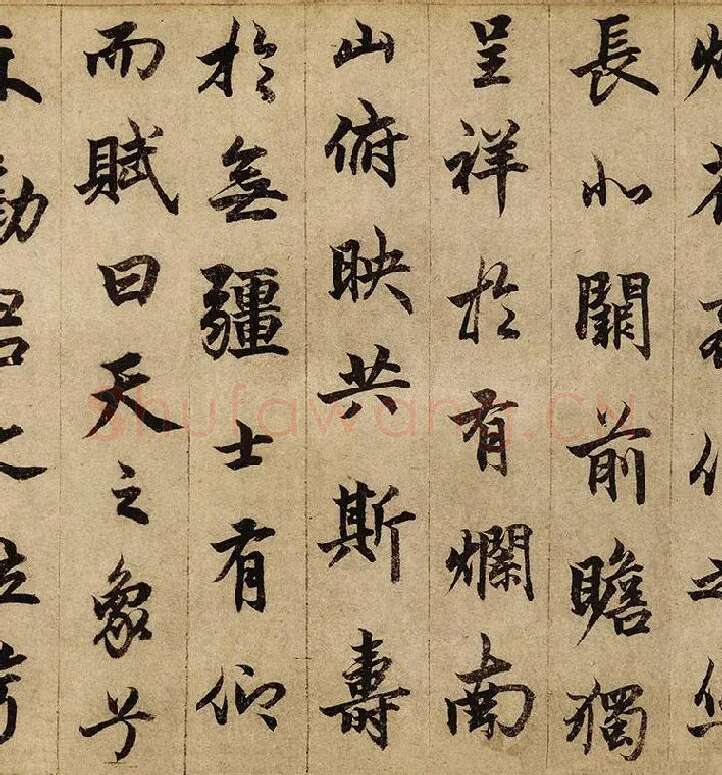 之
長北闕前瞻獨
呈祥於有爛南
山俯映共斯壽
於無疆士有仰
而賦曰天之象兮
勸君之
shufawang.CN